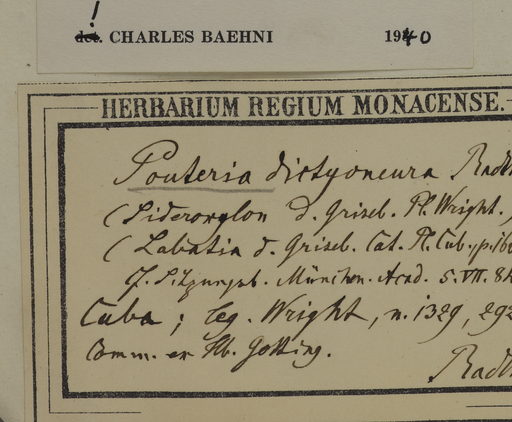 !
det. CHARLES BAEHNI 1940
HERBARIUM REGIUM MONACENSE.
Pouteria dictyoneura Radlk
(Sideroxylon d. Griseb. Pl. Wright.
(Labatia d. Griseb. Cat. Pl. Cub. p. 16
f. Sitzungsb. München. Acad. 5. VII. 84
Cuba; leg. Wright, n. 1329, 292
Comm. ex Hb. Gotting.
Radlk